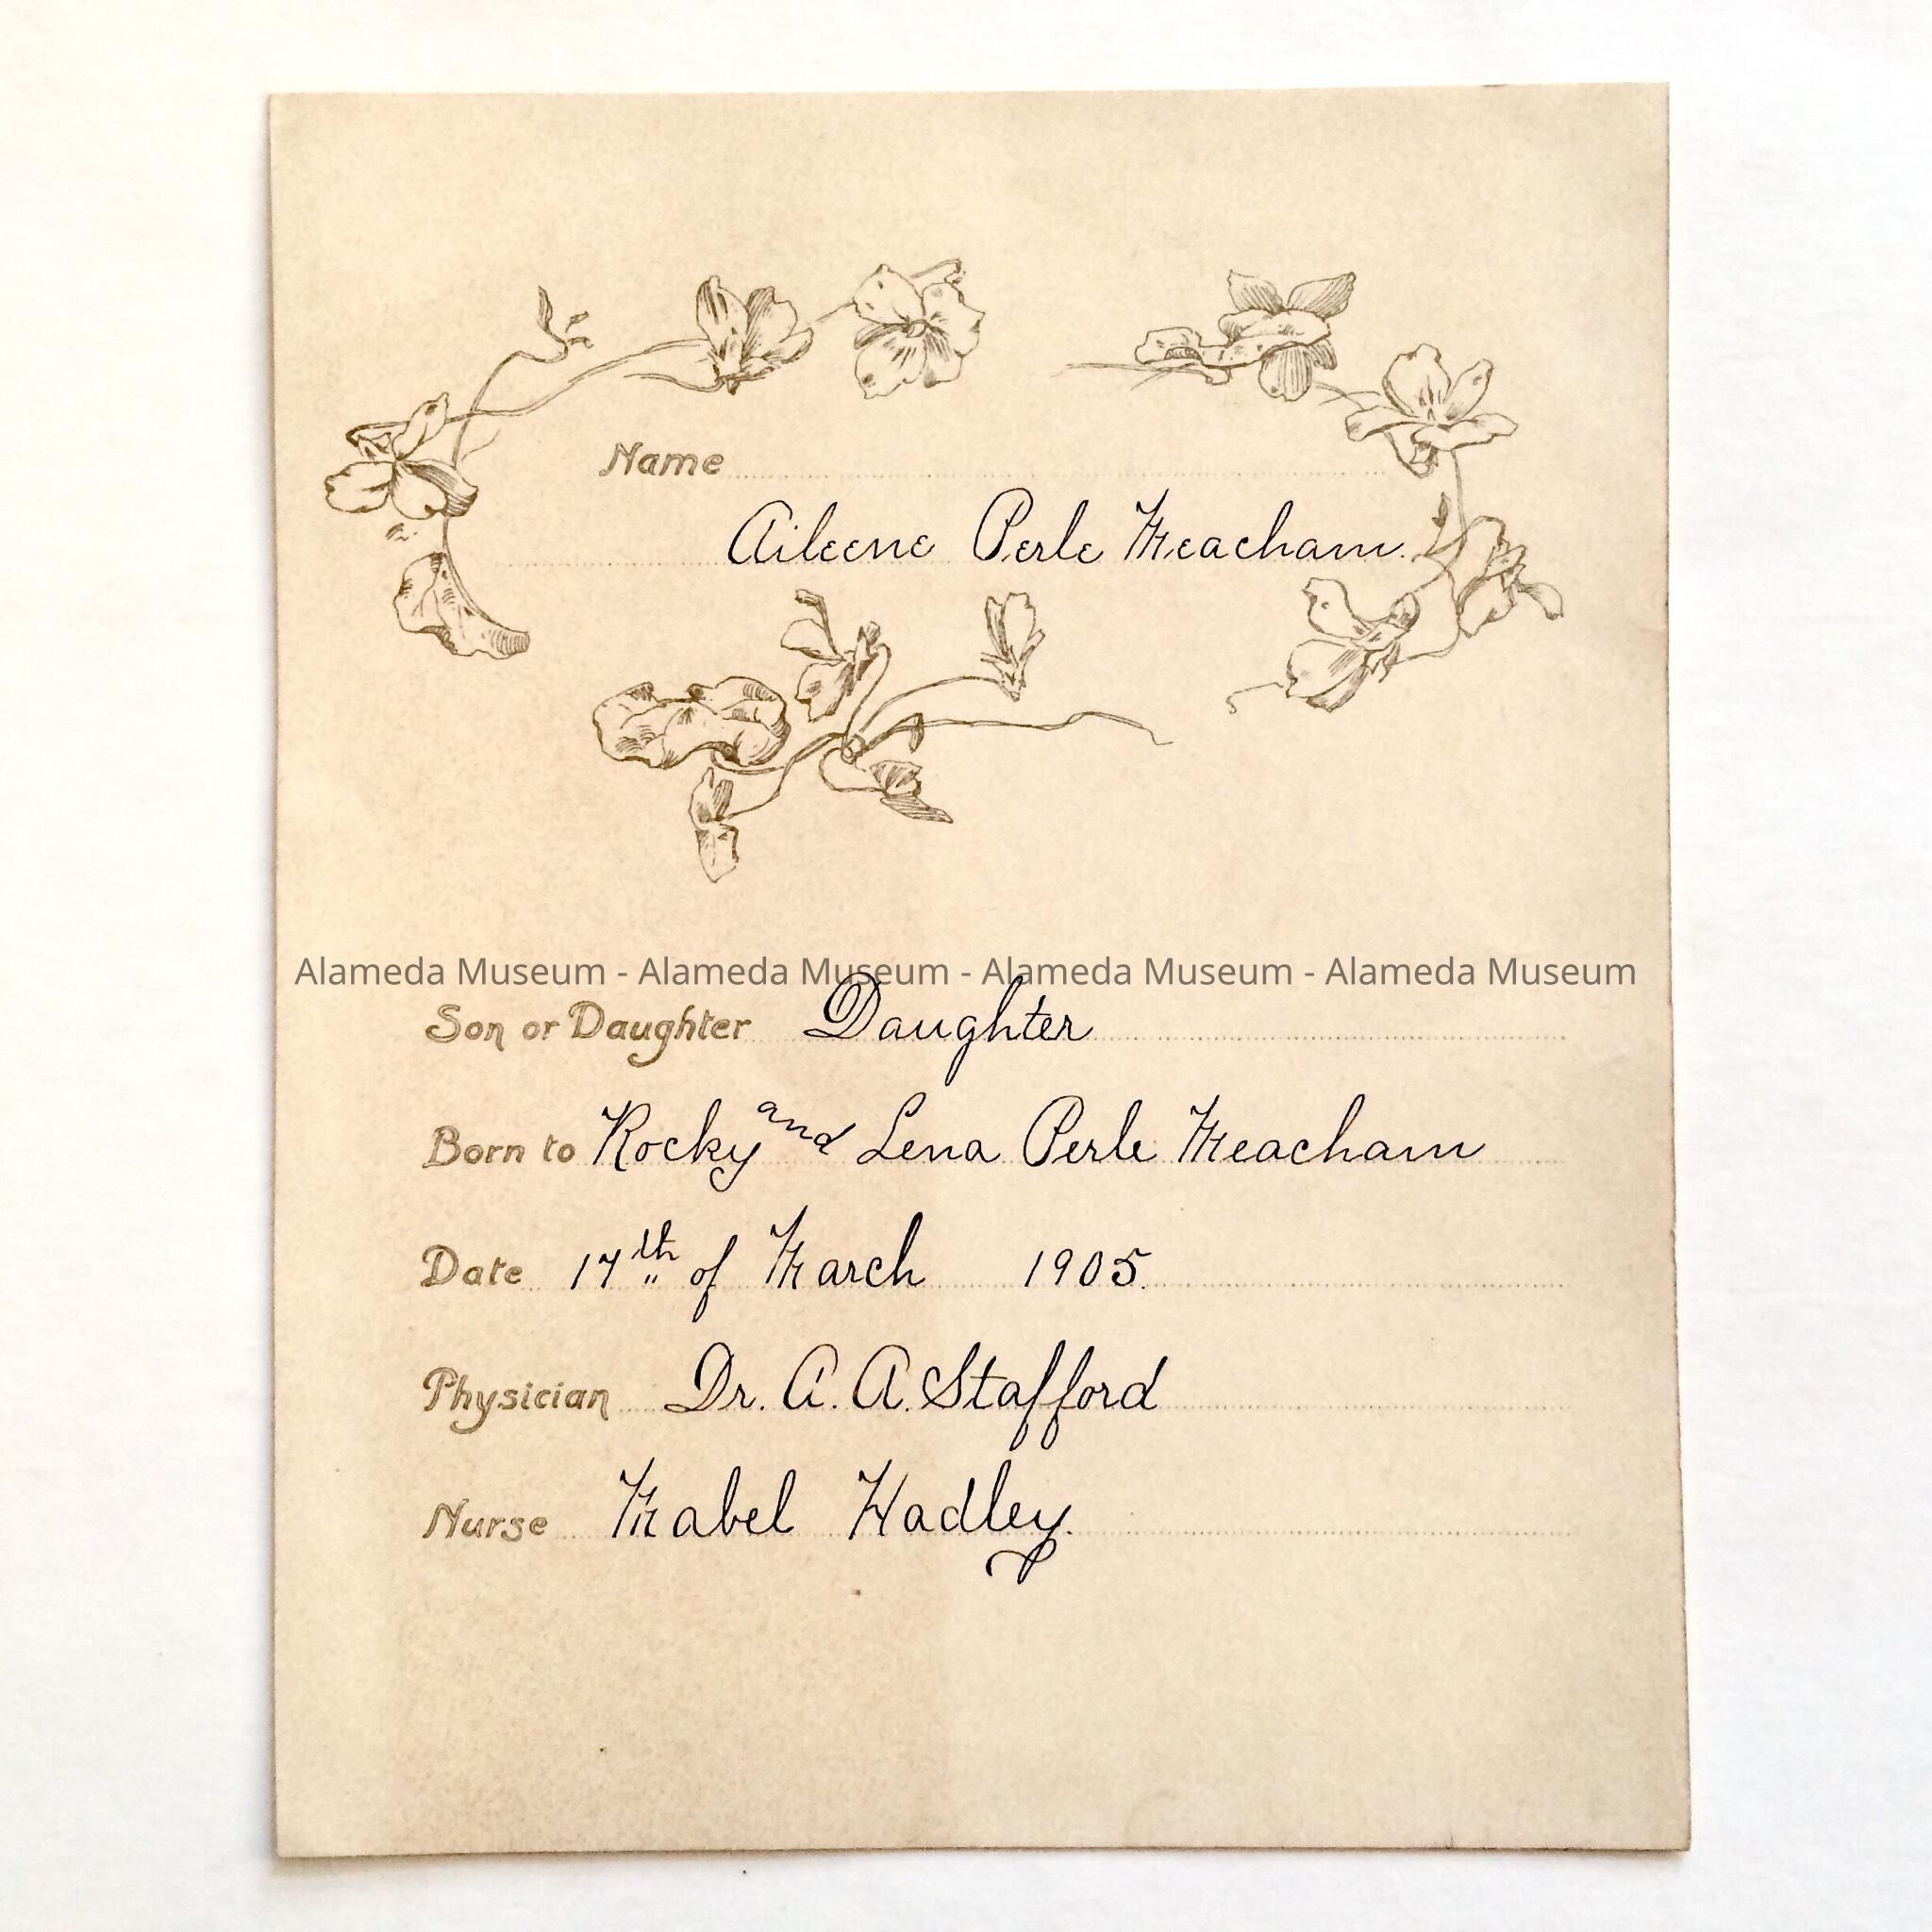 Name
Aileene Perle Meacham.
Alameda Museum - Alameda Museum - Alameda Museum - Alameda Museum
Son or Daughter Daughter
Born to Rocky and Lena Perle Meacham
Date 17th of March 1905.
Physician Dr. A. A. Stafford
Nurse Mabel Hadley.